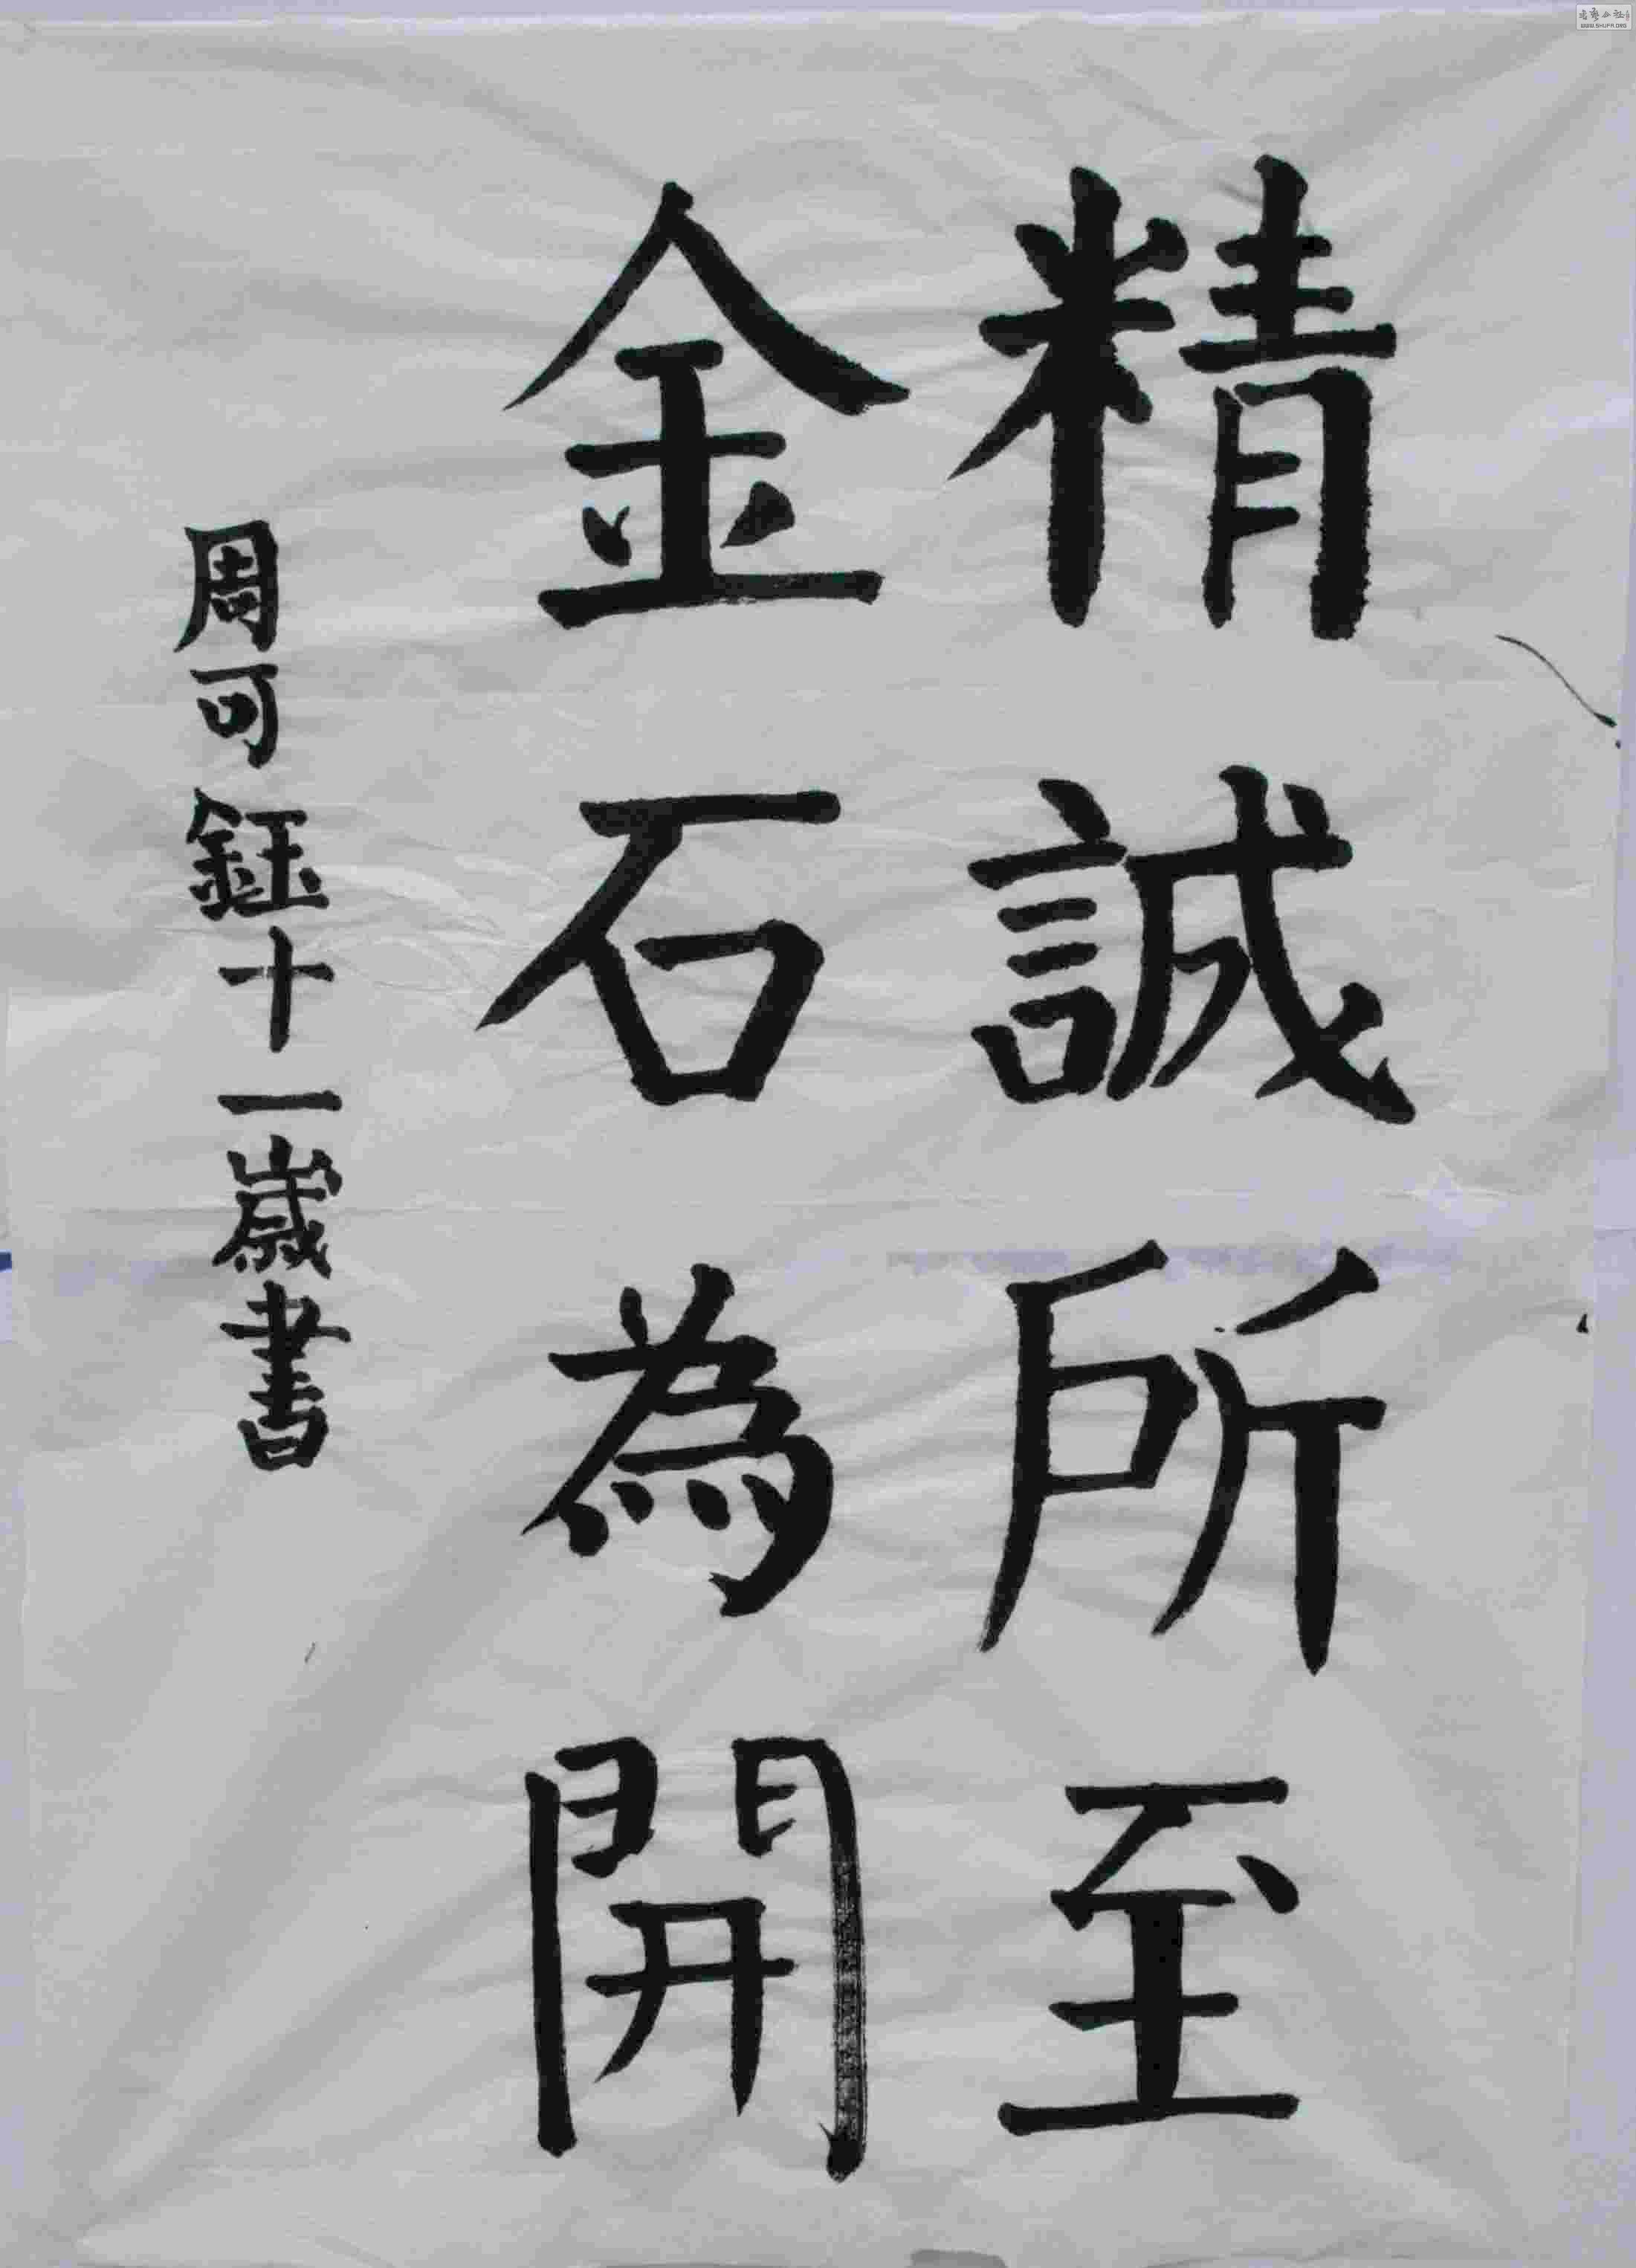 精誠所至
金石為開
周可鈺十一歲書
WWW.SHUFA.ORG